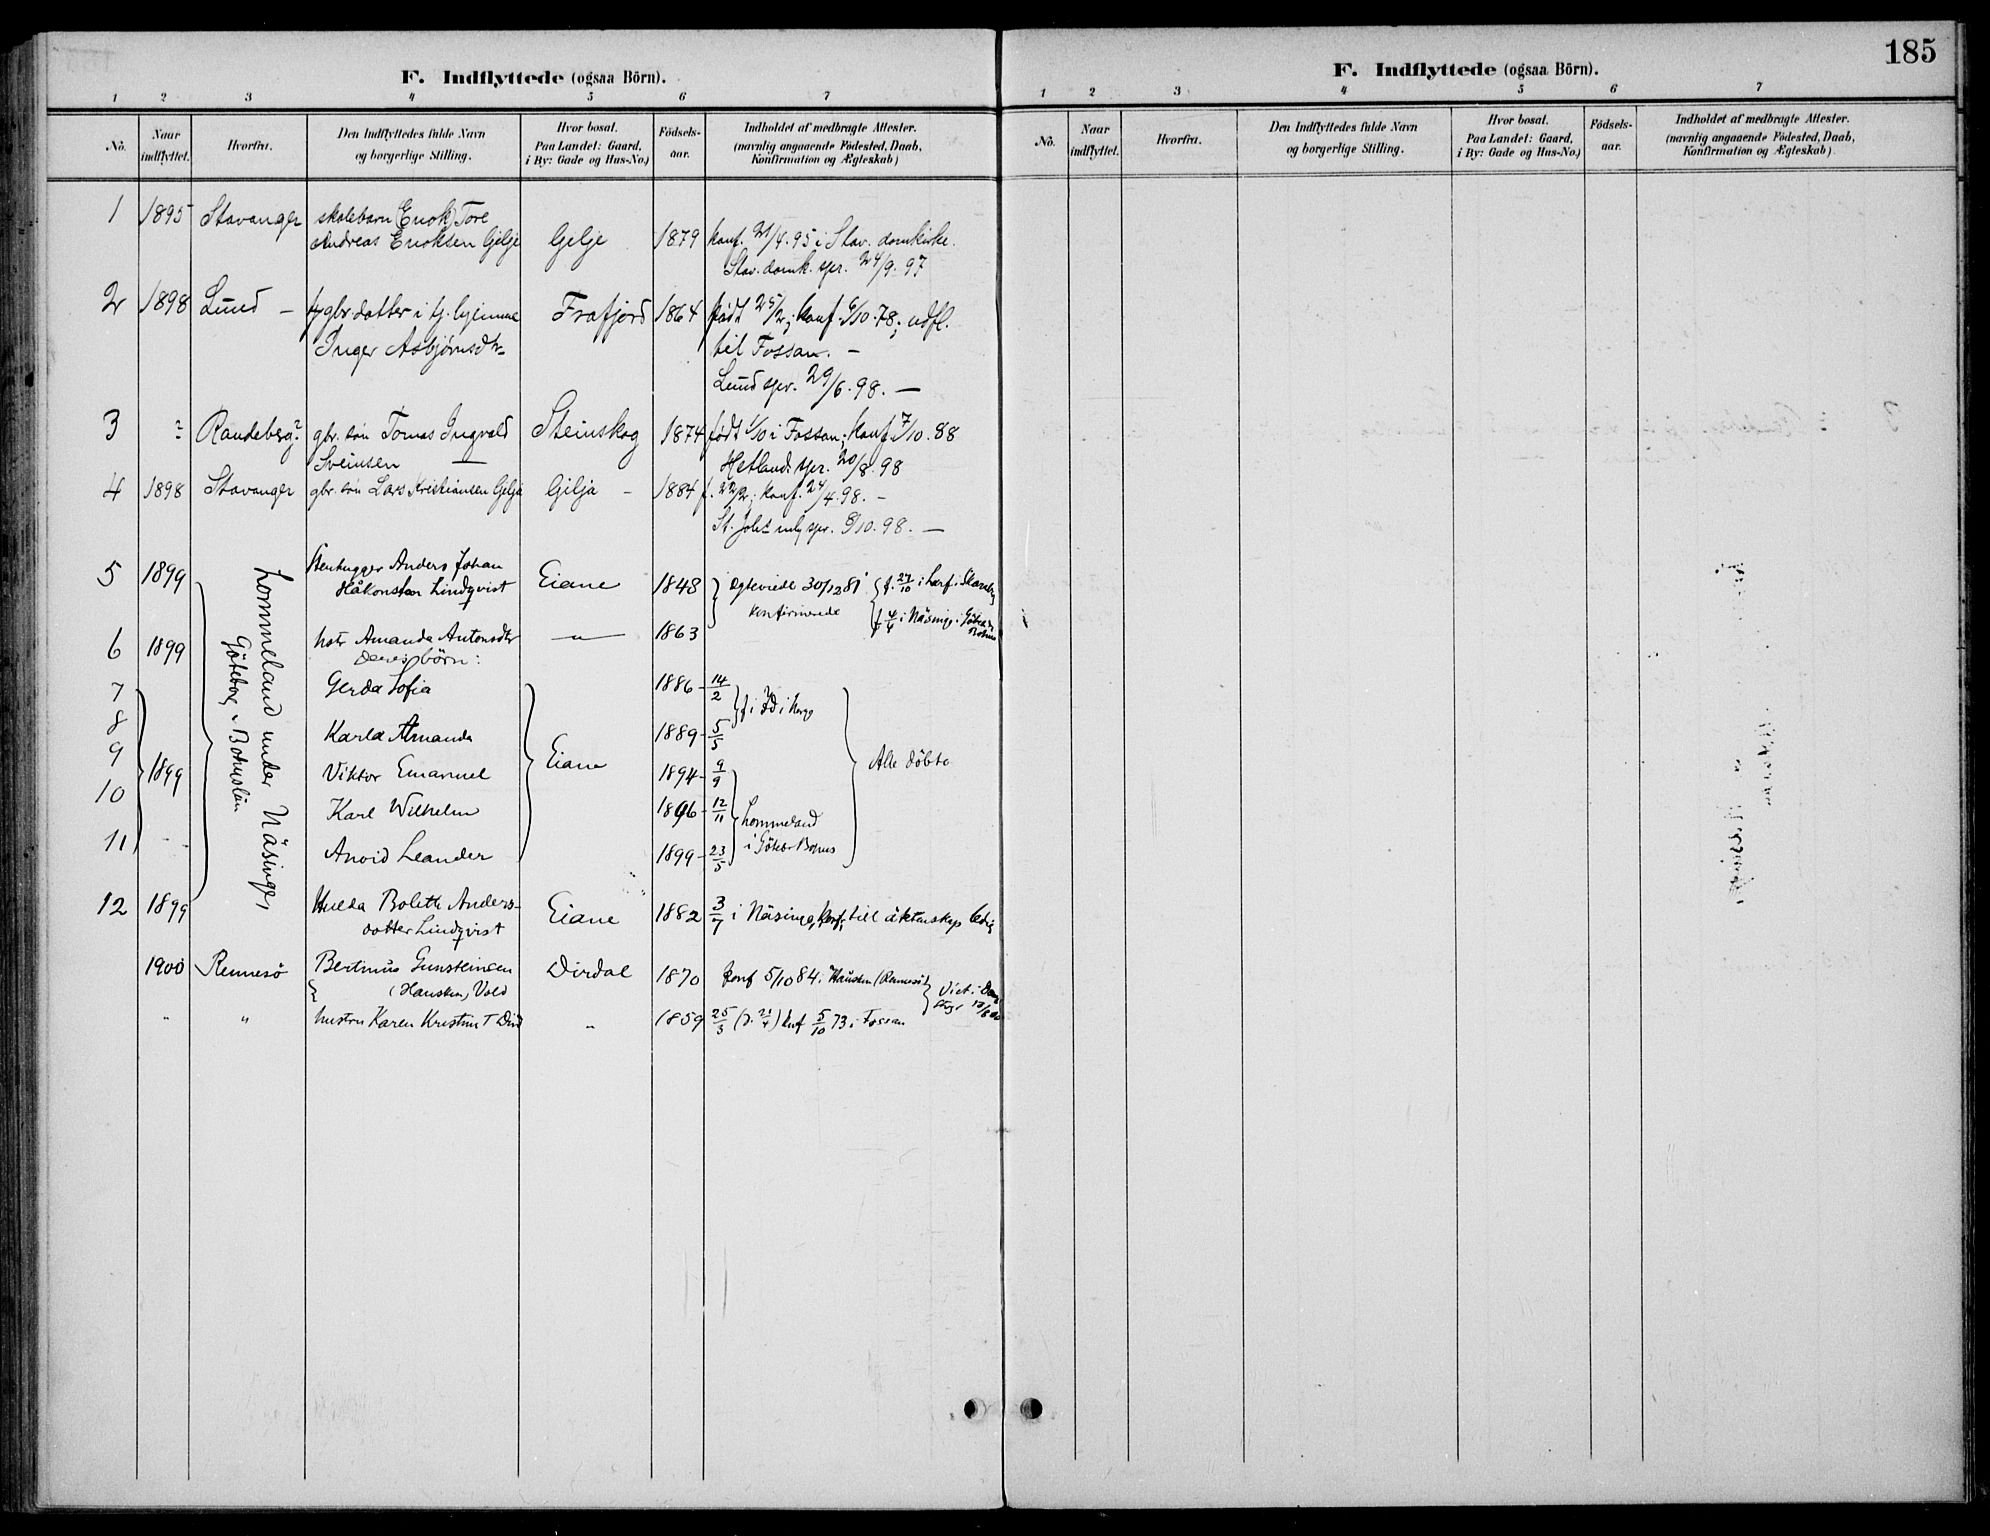 F. Indflyttede (ogsaa Börn).
1 2 3 4 5 6 7
No. Naar indflyttet. Hvorfra. Den Indflyttedes fulde Navn og borgerlige Stilling. Hvor bosat. Paa Landet: Gaard, i By: Gade og Hus-No.) Födsels-aar. Indholdet af medbragte Attester. (navnlig angaaende Födested, Daab, Konfirmation og Ægteskab)
1 1895 Stavanger skolebarn (Enok) Tore
Andreas Enoksen Gilje Gilje 1879 konf. 21/4.95 i Stav. domkirke.
Stav. domk. spr. 24/9.97
2 1898 Lund – gbr. datter i tj. hjemme Frafjord 1864 født 25/2; konf. 6/10.78; udfl.
Inger Asbjørnsdtr. til Fossan. –
Lund spr. 29/6.98. –
3 Randeberg? gbr. søn Tomas Ingvald Steinskog 1874 født 1/10 i Fossan; konf. 7/10.88
Sveinsen — Hetland spr. 20/8.98
4 1898 Stavanger gbr. søn Lars Kristiansen Gilja Gilja – 1884 f. 22/2; konf. 24/4.98. –
St. spr. 8/10.98. –
5 1899 Stenhugger Anders Johan
Håkonsen Lindqvist Eiane 1843 Ægteviede 30/12 81 f. 27/10 i
konfirmerede f 4/4 i Näsinge i
6 1899 hstr Amanda Antonsdtr — 1863
Deres börn:
Lommeland under Näsinge,
Göteborg, Bohuslän
7 Gerda Sofia 1886 – 14/2 f i Id i Norge
8 Karla Amanda 1889 – 5/5
9 1899 Viktor Emanuel Eiane 1894 – 9/9 Alle döbte
10 Karl Wilhelm 1896 – 12/11 Lommeland
11 Arvid Leander 1899 – 23/5 i Göteb. Bohus
12 1899 Hulda Bolette Anders-
dotter Lindqvist Eiane 1882 3/7 i Näsinge, konf; till äktenskap ledig
1900 Rennesö Bertinus Gunsteinsen Dirdal 1870 konf 5/10 84 i Hausken (Rennesö)
(Hausken) Vold
" " hustru Karen Kristine T " 1859 25/3 konf 5/10 73 i Fossan
185
F. Indflyttede (ogsaa Börn).
1 2 3 4 5 6 7
No. Naar indflyttet. Hvorfra. Den Indflyttedes fulde Navn og borgerlige Stilling. Hvor bosat. Paa Landet: Gaard, i By: Gade og Hus-No.) Födsels-aar. Indholdet af medbragte Attester. (navnlig angaaende Födested, Daab, Konfirmation og Ægteskab).